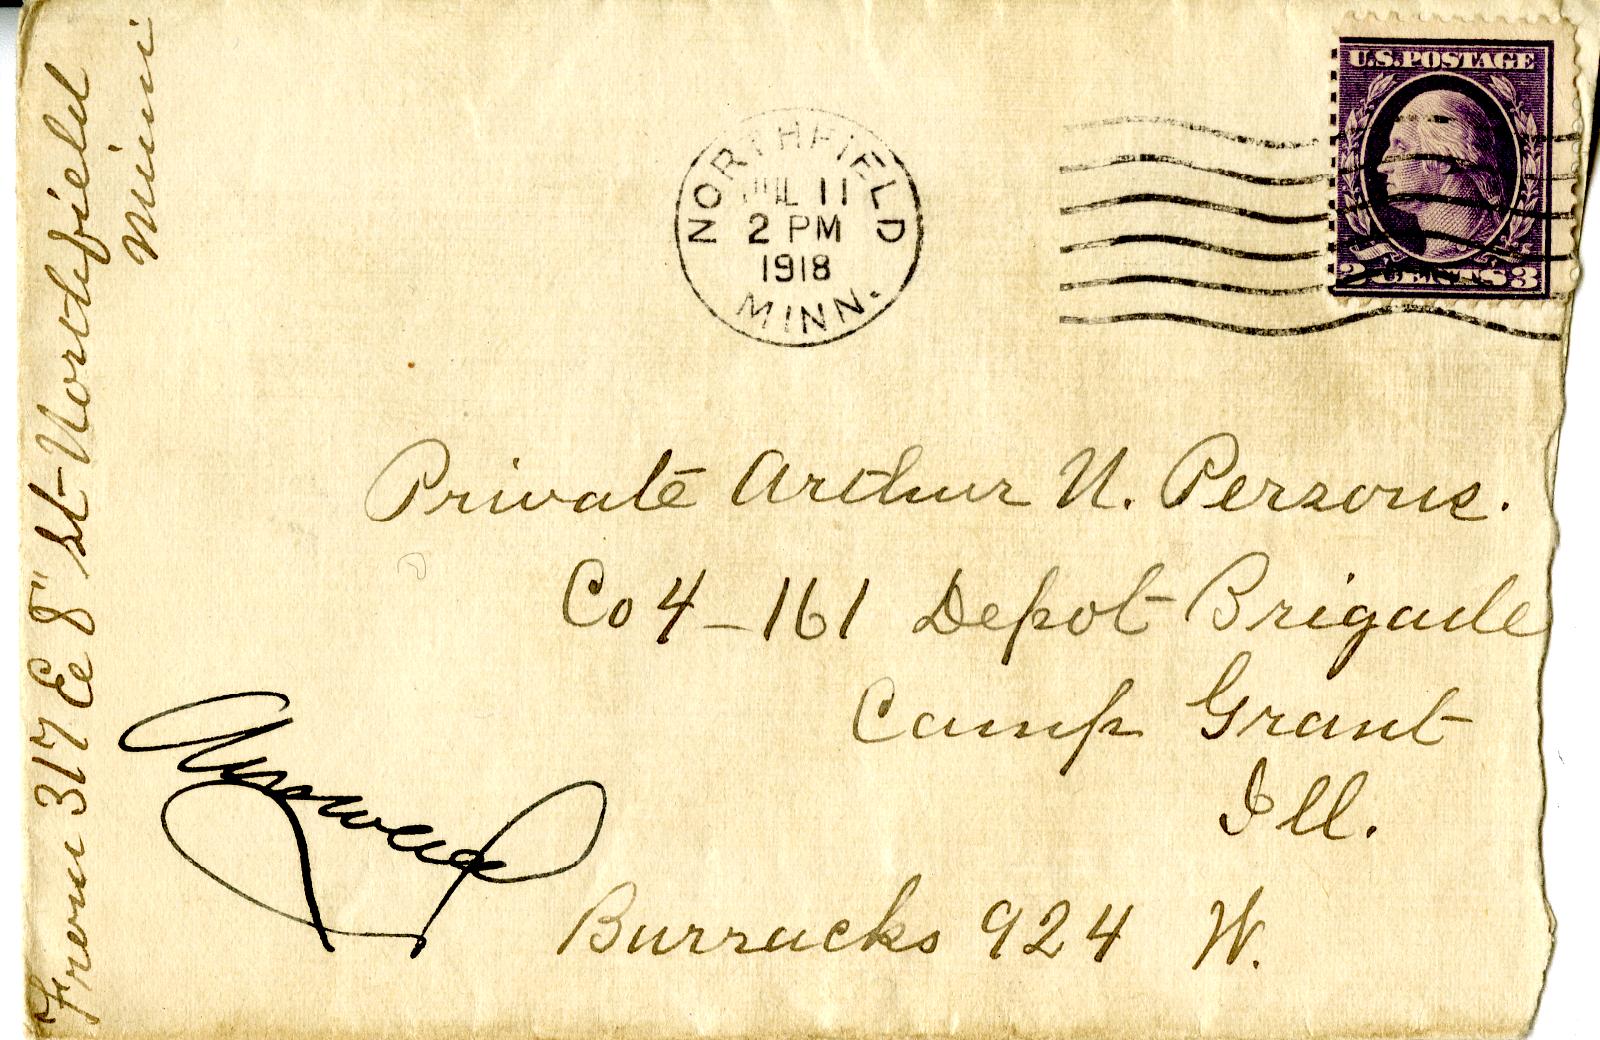 From 317 E 8" St- Northfield
Minn
NORTHFIELD
JUL 11
2 PM
1918
MINN.
U.S. POSTAGE
3 CENTS 3
Private Arthur N. Persons.
Co 4 - 161 Depot Brigade
Camp Grant
Ill.
Answered
Barracks 924 W.